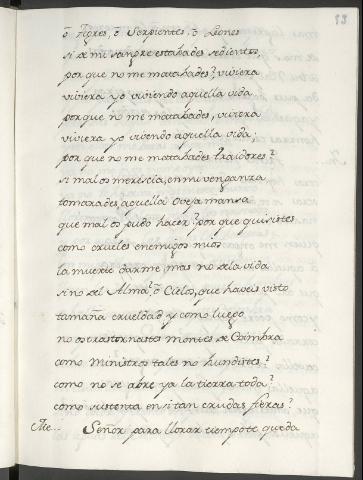 82
ò Tigres, ò Serpientes, ò Leones
si de mi sangre estabades sedientos,
por que no me matabades? viviera
viviera yo viviendo aquella vida.
por que no me matabades, viviera
viviera yo vivendo aquella vida;
por que no me matabades traidores?
si mal os merescia, en mi venganza
tomarades, aquella oveja mansa
que mal os pudo hacer? por que quisistes
como crueles enemigos mios
la muerte darme, mas no dela vida
sino del Alma? ò Cielos, que haveis visto
tamaña crueldad y como luego
no os trastornastes montes de Coimbra
como Ministros tales no hundistes?
como no se abre ya la tierra toda?
como sustenta en si tan crudas fieras?
Me... Señor para llorar tiempo te queda